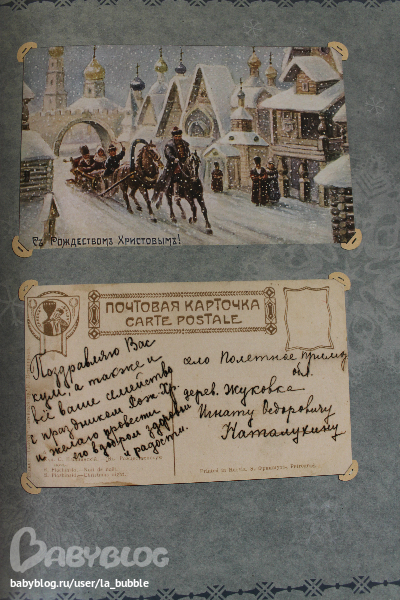 Съ Рождествомъ Христовымъ!
ПОЧТОВАЯ КАРТОЧКА
CARTE POSTALE
Поздравляю Вас
кум, а также и
всё ваше семейство
с праздником Рож. Хр.
и желаю провести
его в добром здоровьи
и радости.
село Полетное
дерев. Жуковка
Игнату Федоровичу
BABYBLOG
babyblog.ru/user/la_bubble